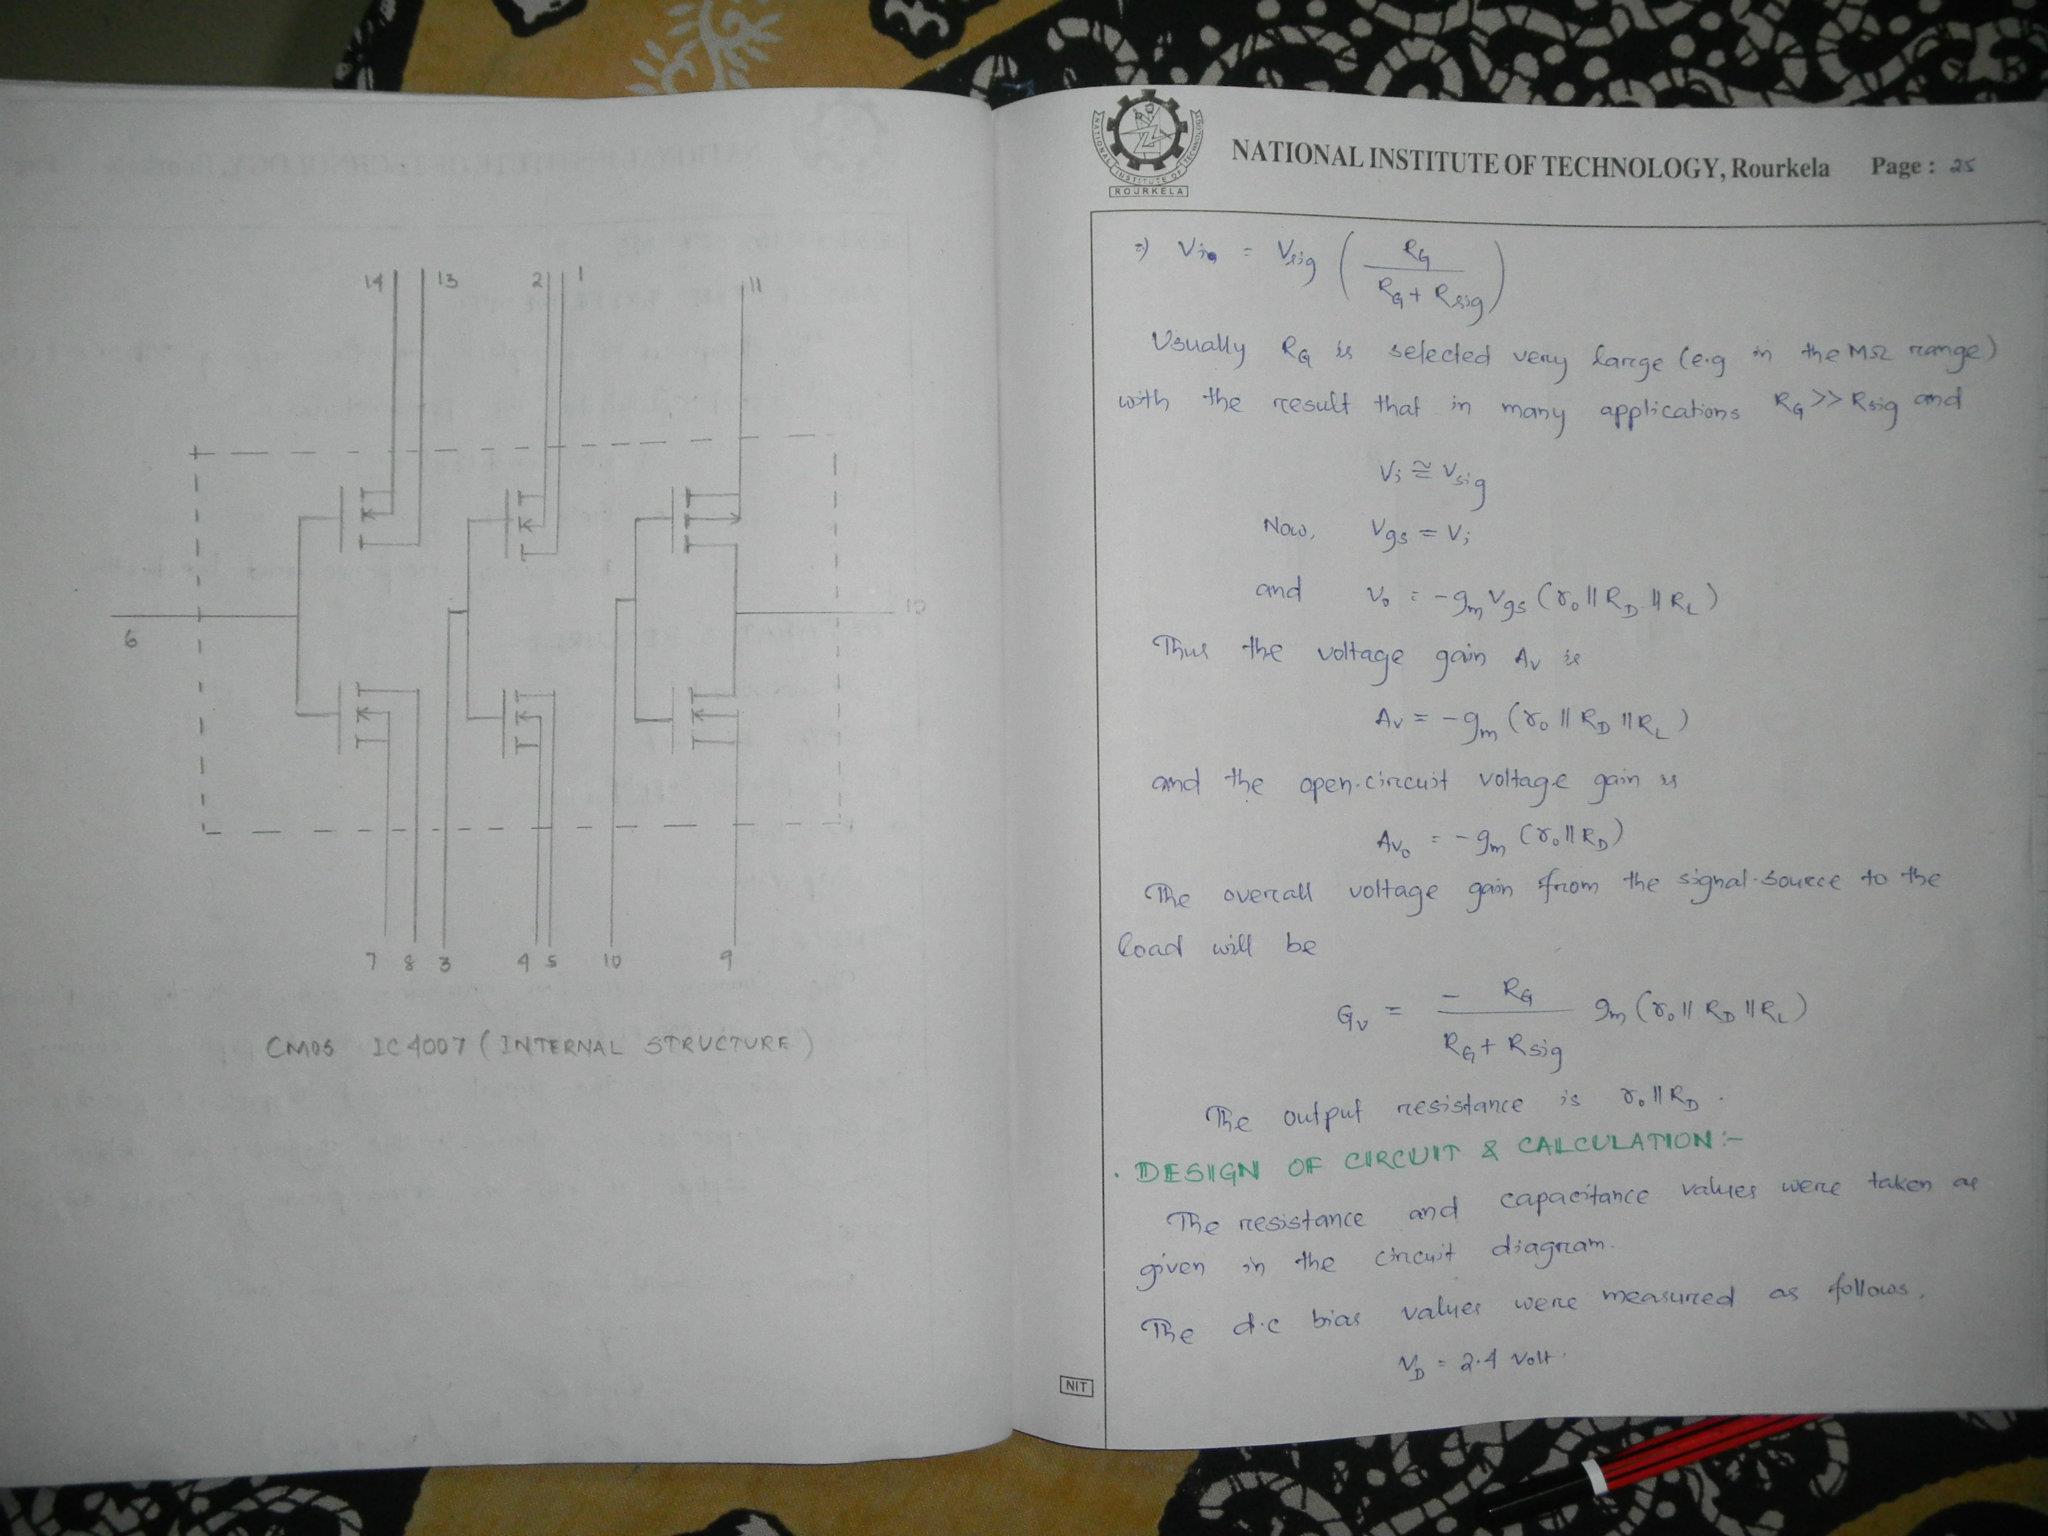 14 13 2 1 11
6
12
7 8 3 4 5 10 9
CMOS IC4007 (INTERNAL STRUCTURE)
NATIONAL INSTITUTE OF TECHNOLOGY
ROURKELA
NATIONAL INSTITUTE OF TECHNOLOGY, Rourkela Page : 25
=) Vin = Vsig ( RG / RG + Rsig )
Usually RG is selected very large (e.g in the MΩ range)
with the result that in many applications RG >> Rsig and
Vi ≅ Vsig
Now, Vgs = Vi
and Vo = -gm Vgs (ro || RD || RL)
Thus the voltage gain Av is
Av = -gm (ro || RD || RL)
and the open-circuit voltage gain is
Avo = -gm (ro || RD)
The overall voltage gain from the signal-source to the
load will be
Gv = - RG / RG + Rsig gm (ro || RD || RL)
The output resistance is ro || RD .
. DESIGN OF CIRCUIT & CALCULATION :-
The resistance and capacitance values were taken as
given in the circuit diagram.
The d.c bias values were measured as follows.
VD = 2.4 Volt.
NIT